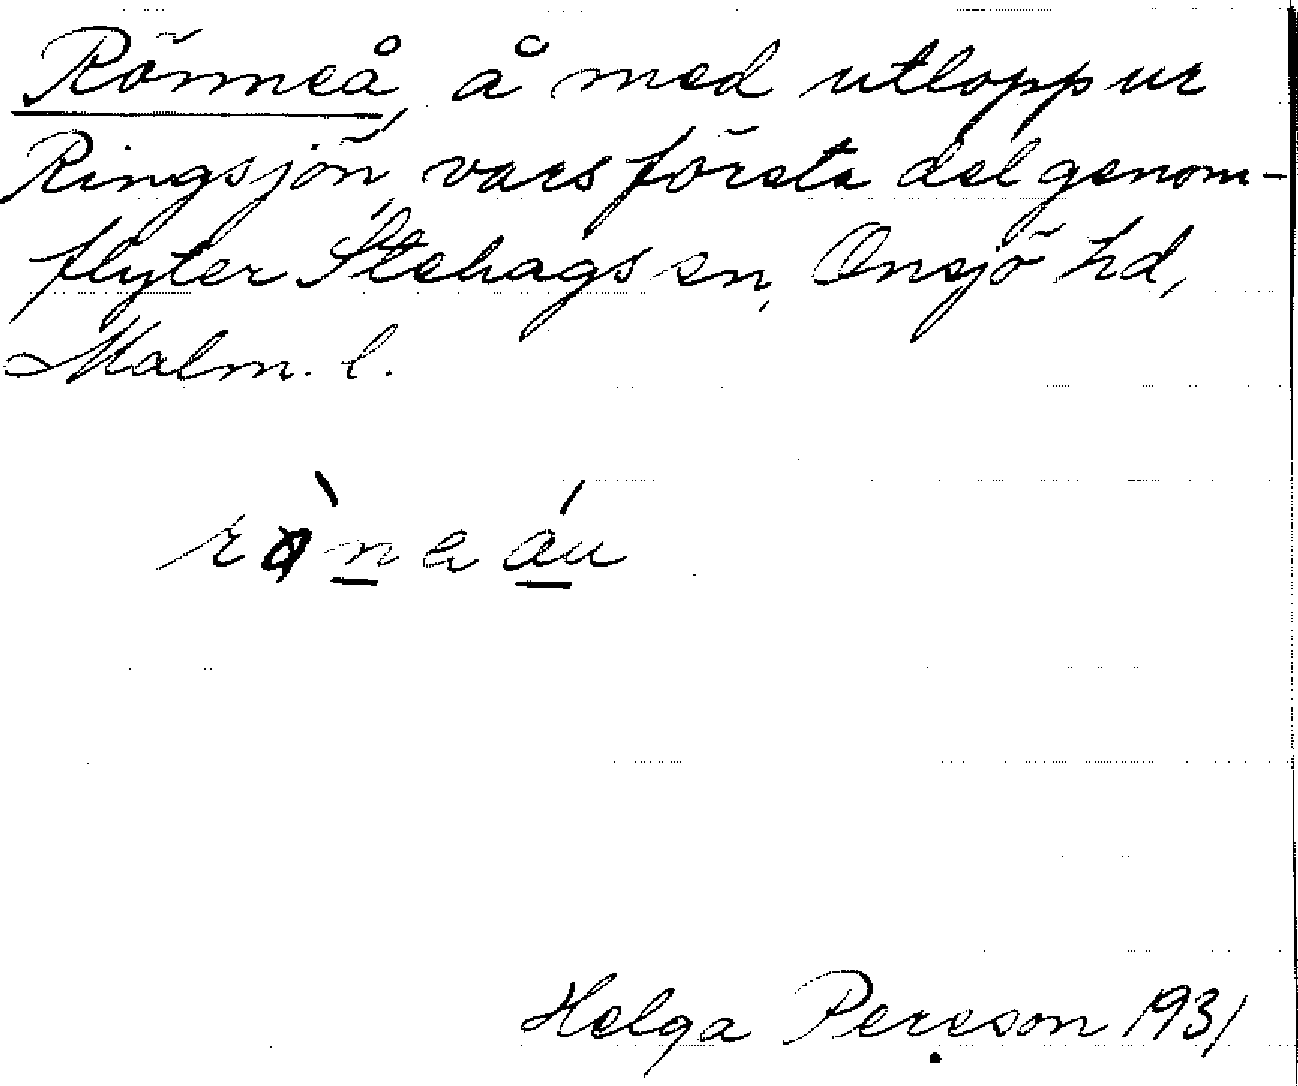 Rönneå, å med utlopp ur
Ringsjön, vars första del genom-
flyter Stehags sn, Onsjö hd,
Malm. l.
Helga Persson 1931